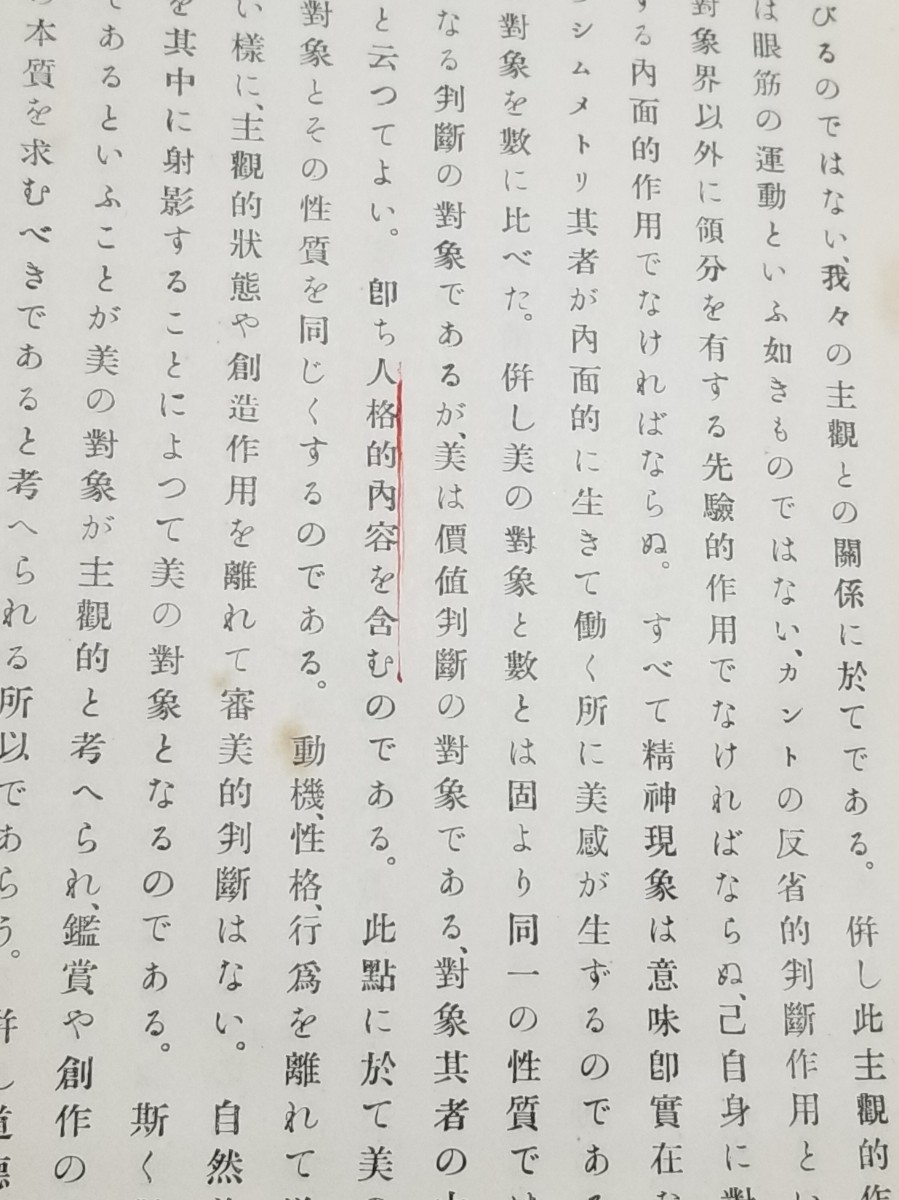 びるのではない、我々の主觀との關係に於てである。併し此主觀的作
は眼筋の運動といふ如きものではない、カントの反省的判斷作用とい
對象界以外に領分を有する先驗的作用でなければならぬ、己自身に對
する內面的作用でなければならぬ。すべて精神現象は意味卽實在な
シムメトリ其者が內面的に生きて働く所に美感が生ずるのである
對象を數に比べた。併し美の對象と數とは固より同一の性質では
なる判斷の對象であるが、美は價値判斷の對象である、對象其者の
と云つてよい。卽ち人格的內容を含むのである。此點に於て美の
對象とその性質を同じくするのである。動機、性格、行爲を離れて
い樣に、主觀的狀態や創造作用を離れて審美的判斷はない。自然
を其中に射影することによつて美の對象となるのである。斯く
であるといふことが美の對象が主觀的と考へられ、鑑賞や創作の
本質を求むべきであると考へられる所以であらう。併し道德